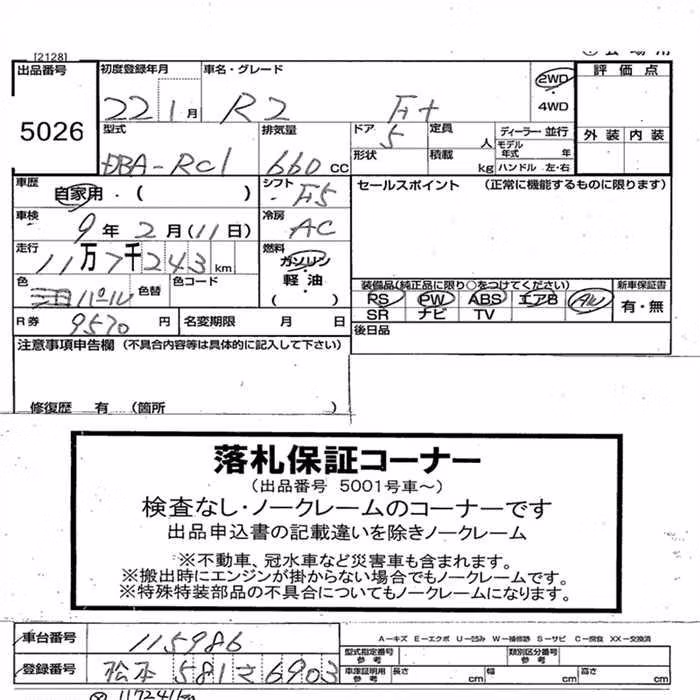 [2128]
出品番号 初度登録年月 車名・グレード 2WD 評価点
5026 22 1月 R2 F+ 4WD
型式 排気量 ドア 定員 ディーラー・並行 外装 内装
DBA-RC1 660cc 5 人 モデル年式 年
形状 積載 kg ハンドル 左・右
車歴 自家用・( ) シフト F5 セールスポイント (正常に機能するものに限ります)
車検 9年2月(11日) 冷房 AC
走行 11万7千243km 燃料 ガソリン
軽・油
( )
色 パール 色替 色コード 装備品(純正品に限り○をつけてください) 新車保証書
PS PW ABS エアB AW 有・無
SR ナビ TV
R券 9570円 名変期限 月 日 後日品
注意事項申告欄 (不具合内容等は具体的に記入して下さい)
修復歴 有 (箇所 )
落札保証コーナー
(出品番号 5001号車~)
検査なし・ノークレームのコーナーです
出品申込書の記載違いを除きノークレーム
※不動車、冠水車など災害車も含まれます。
※搬出時にエンジンが掛からない場合でもノークレームです。
※特殊特装部品の不具合についてもノークレームになります。
車台番号 115986 A-キズ E-エクボ U-凹み W-補修跡 S-サビ C-腐食 XX-交換済
型式指定番号 参考 類別区分番号 参考
登録番号 松本 581 さ 6903 車庫証明用 参考 長さ cm 幅 cm 高さ cm